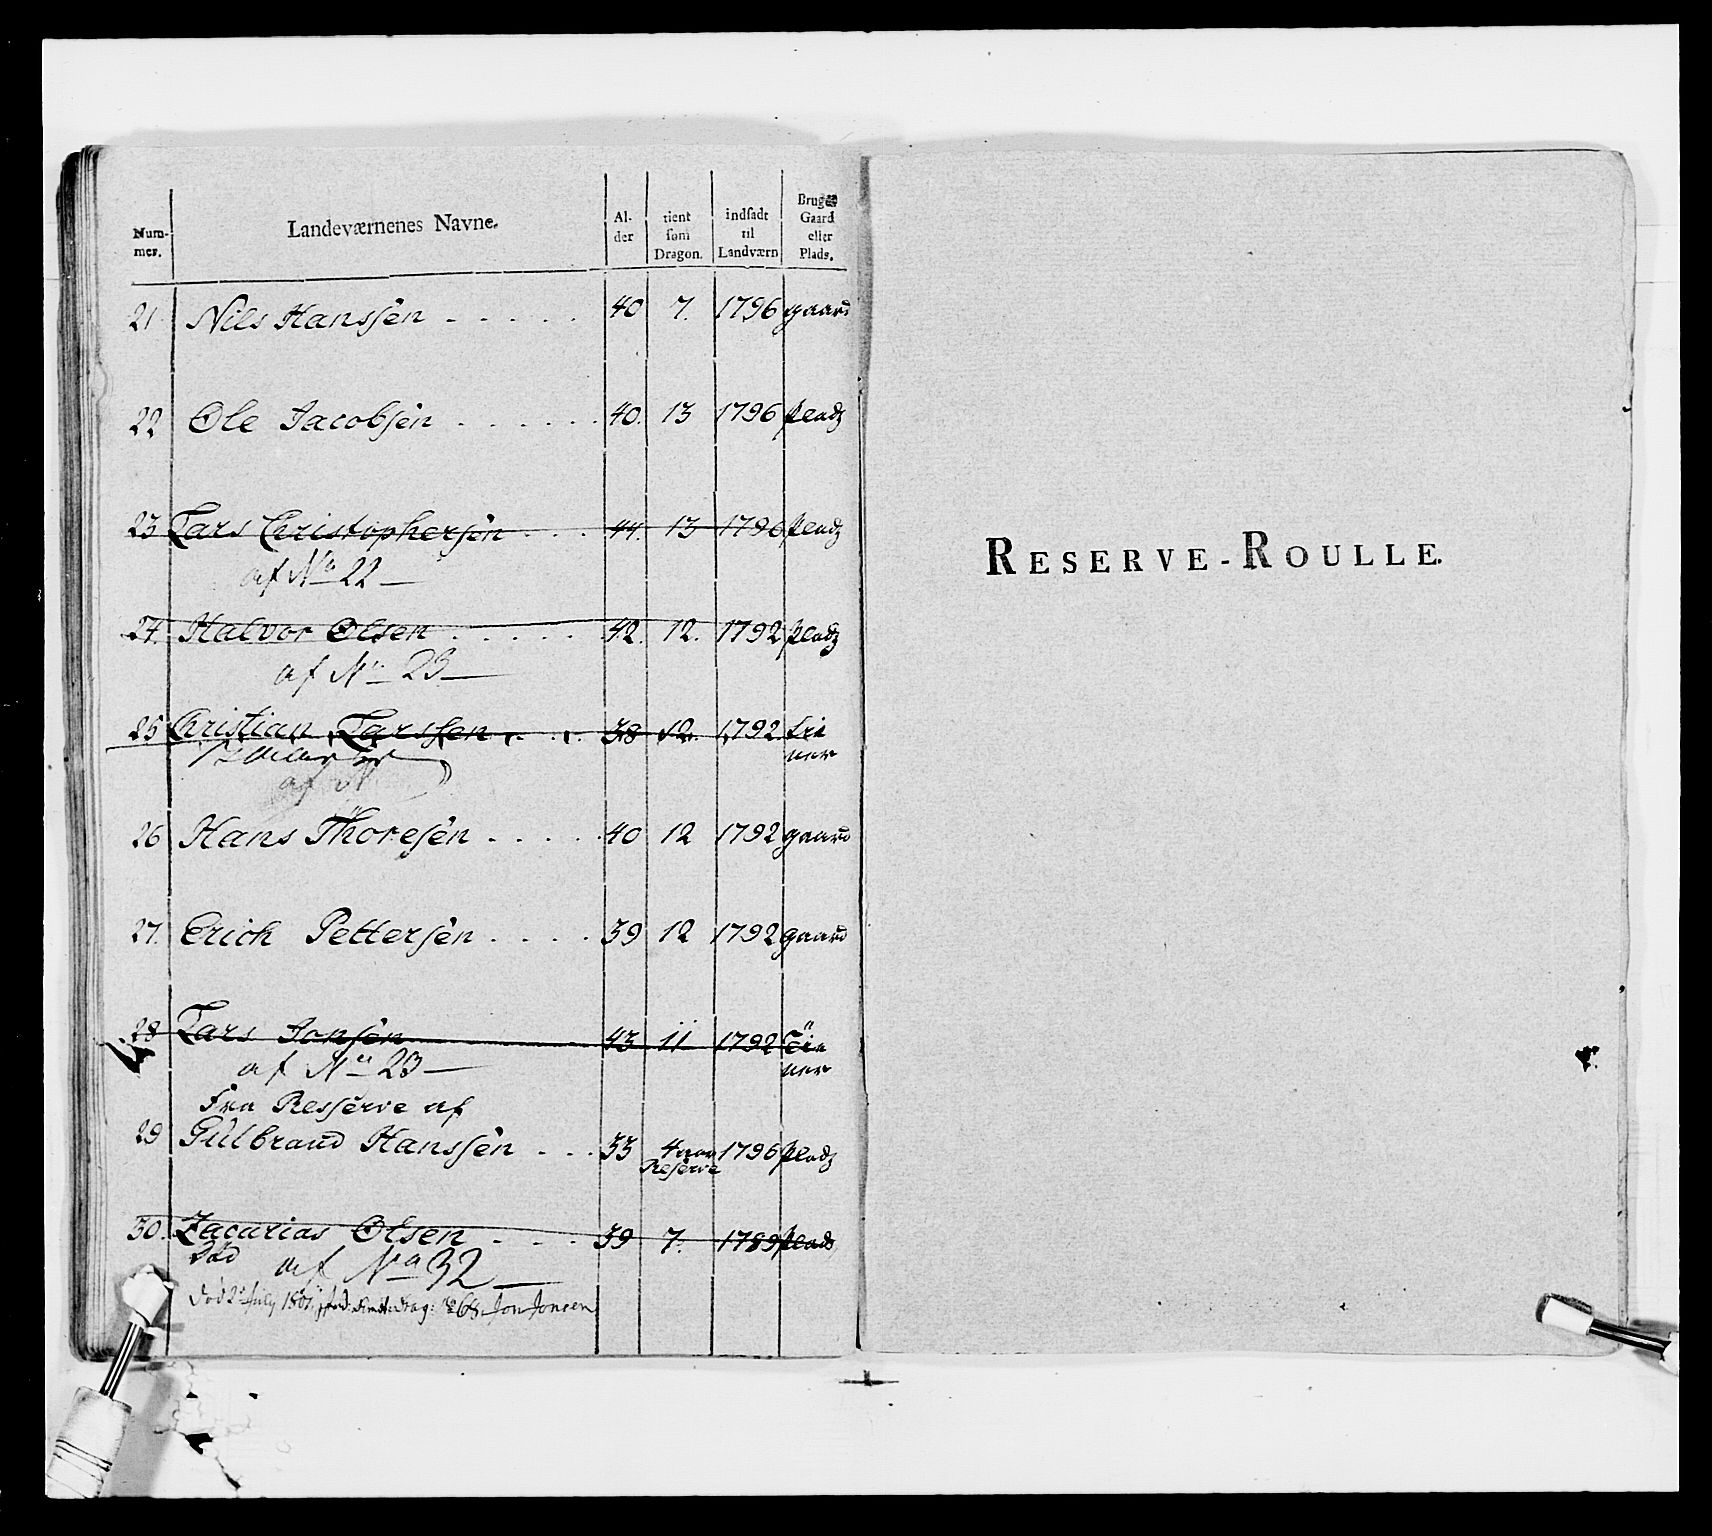 Num-
mer.
Landeværnenes Navne.
Al-
der
tient
som
Dragon.
indsadt
til
Landværn
Bruger
Gaard
eller
Plads.
21 Nils Hanssen - - - - - 40 7. 1796 gaard
22 Ole Jacobsen . . . . . . 40. 13 1796 pladz
23 Lars Christophersen . . . 44. 13 1796 pladz
af No 22 —
24. Halvor Olsen . . . . . 42. 12. 1792 pladz
af No 23 —
25 Christian Larssen . . . 38 12. 1792
af N
26 Hans Thoresen . . . . . 40 12 1792 gaard
27. Erich Pettersen . . . . 39 12 1792 gaard
28 Lars Jonsen 43 11 1792
af No 23 —
Fra Resserve af
29 Gulbrand Hanssen . . . 33 4 aar 1796 pladz
Reserve
30. Zacarias Olsen . . . 39 7. 1789 plads
Død af No 32 —
død 2 July 1801. Jon Jonsen
RESERVE-ROULLE.